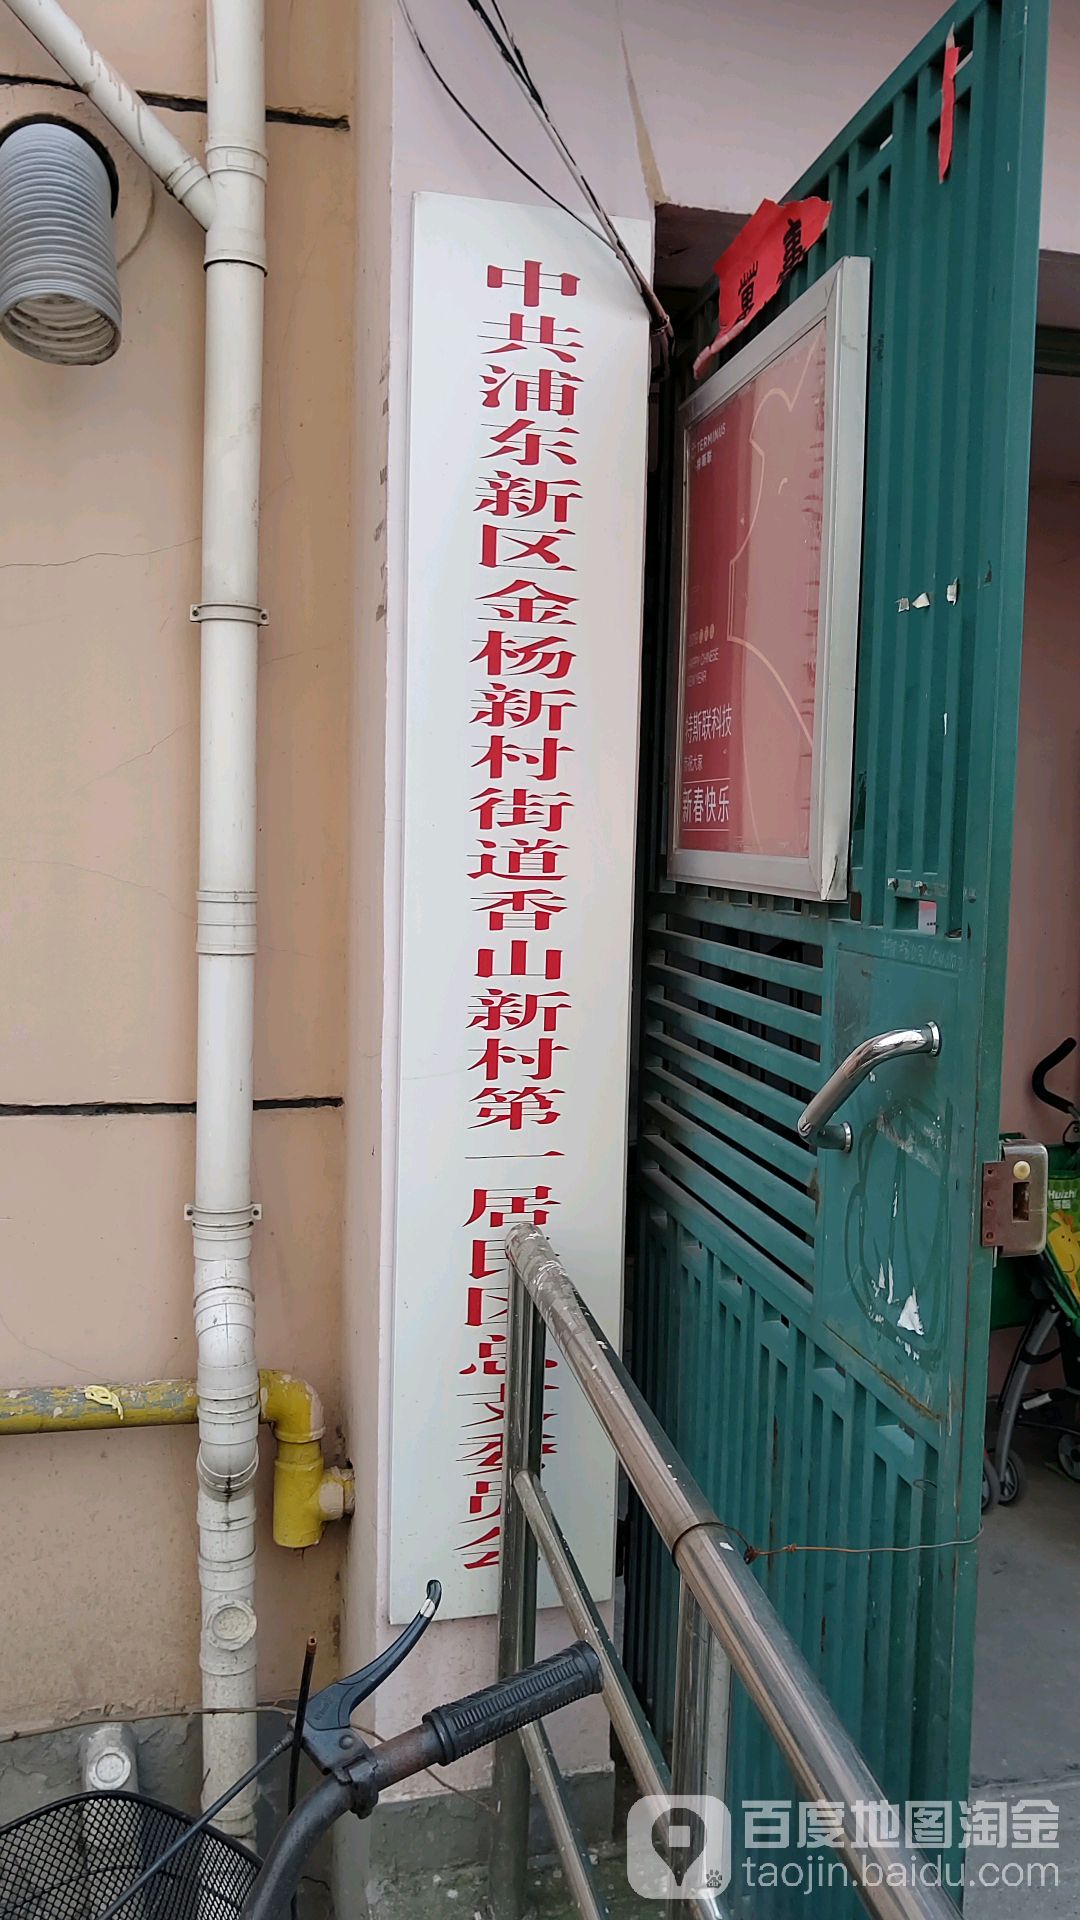 中共浦东新区金杨新村街道香山新村第一居民区总支委员会
喜
TERMINUS
特斯联
HAPPY CHINESE
NEW YEAR
特斯联科技
祝大家
新春快乐
Huizhi
百度地图淘金
taojin.baidu.com